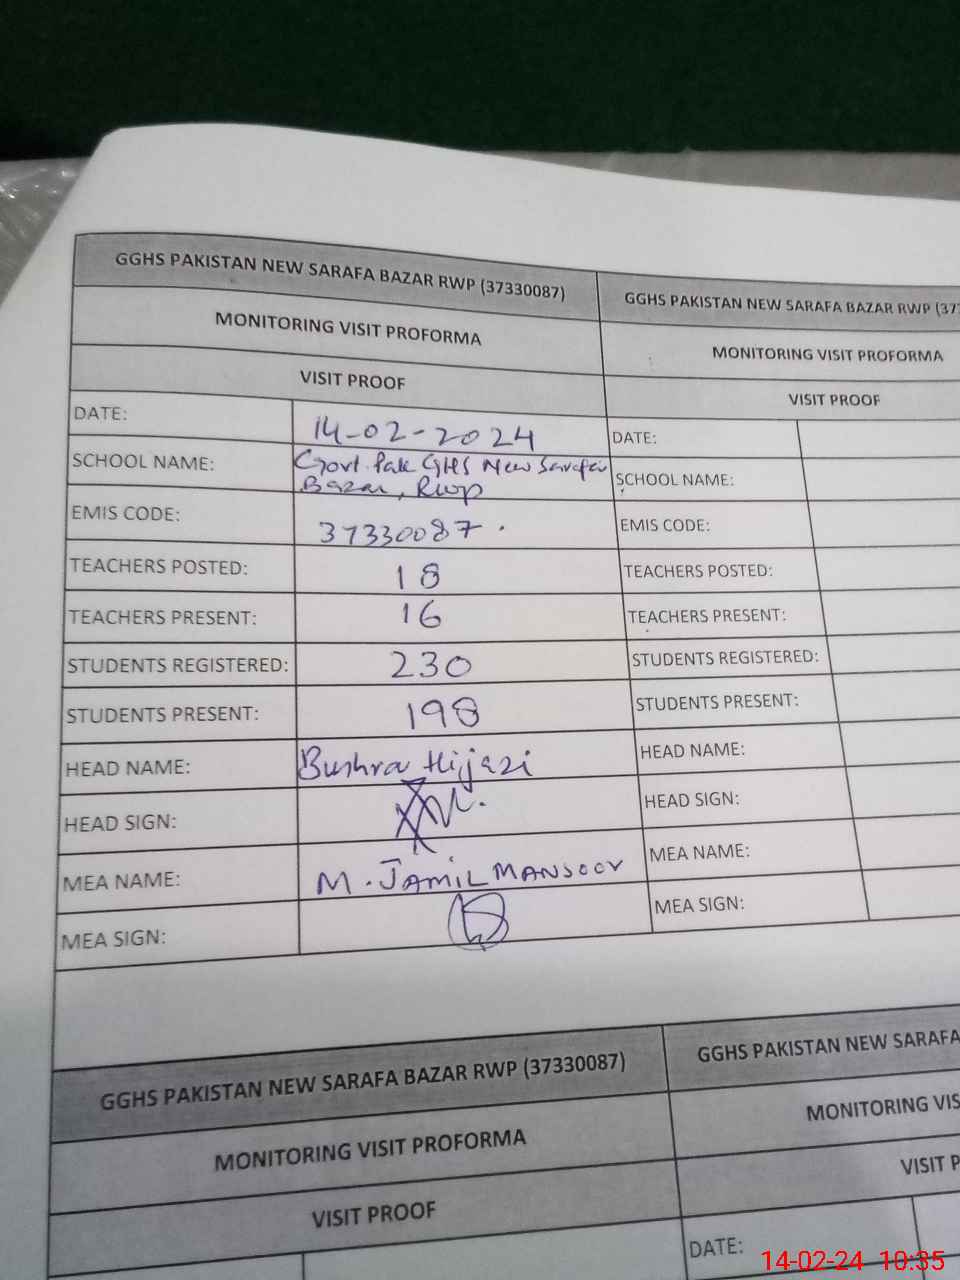 GGHS PAKISTAN NEW SARAFA BAZAR RWP (37330087)
MONITORING VISIT PROFORMA
VISIT PROOF
DATE: 14-02-2024
SCHOOL NAME: Govt. Pak GHS New Sarafa
Bazar, Rwp
EMIS CODE: 37330087.
TEACHERS POSTED: 18
TEACHERS PRESENT: 16
STUDENTS REGISTERED: 230
STUDENTS PRESENT: 198
HEAD NAME: Bushra Hijjazi
HEAD SIGN:
MEA NAME: M. JAMIL MANSOOR
MEA SIGN:
GGHS PAKISTAN NEW SARAFA BAZAR RWP (37
MONITORING VISIT PROFORMA
VISIT PROOF
DATE:
SCHOOL NAME:
EMIS CODE:
TEACHERS POSTED:
TEACHERS PRESENT:
STUDENTS REGISTERED:
STUDENTS PRESENT:
HEAD NAME:
HEAD SIGN:
MEA NAME:
MEA SIGN:
GGHS PAKISTAN NEW SARAFA BAZAR RWP (37330087)
MONITORING VISIT PROFORMA
VISIT PROOF
GGHS PAKISTAN NEW SARAFA
MONITORING VIS
VISIT P
DATE:
14-02-24 10:35